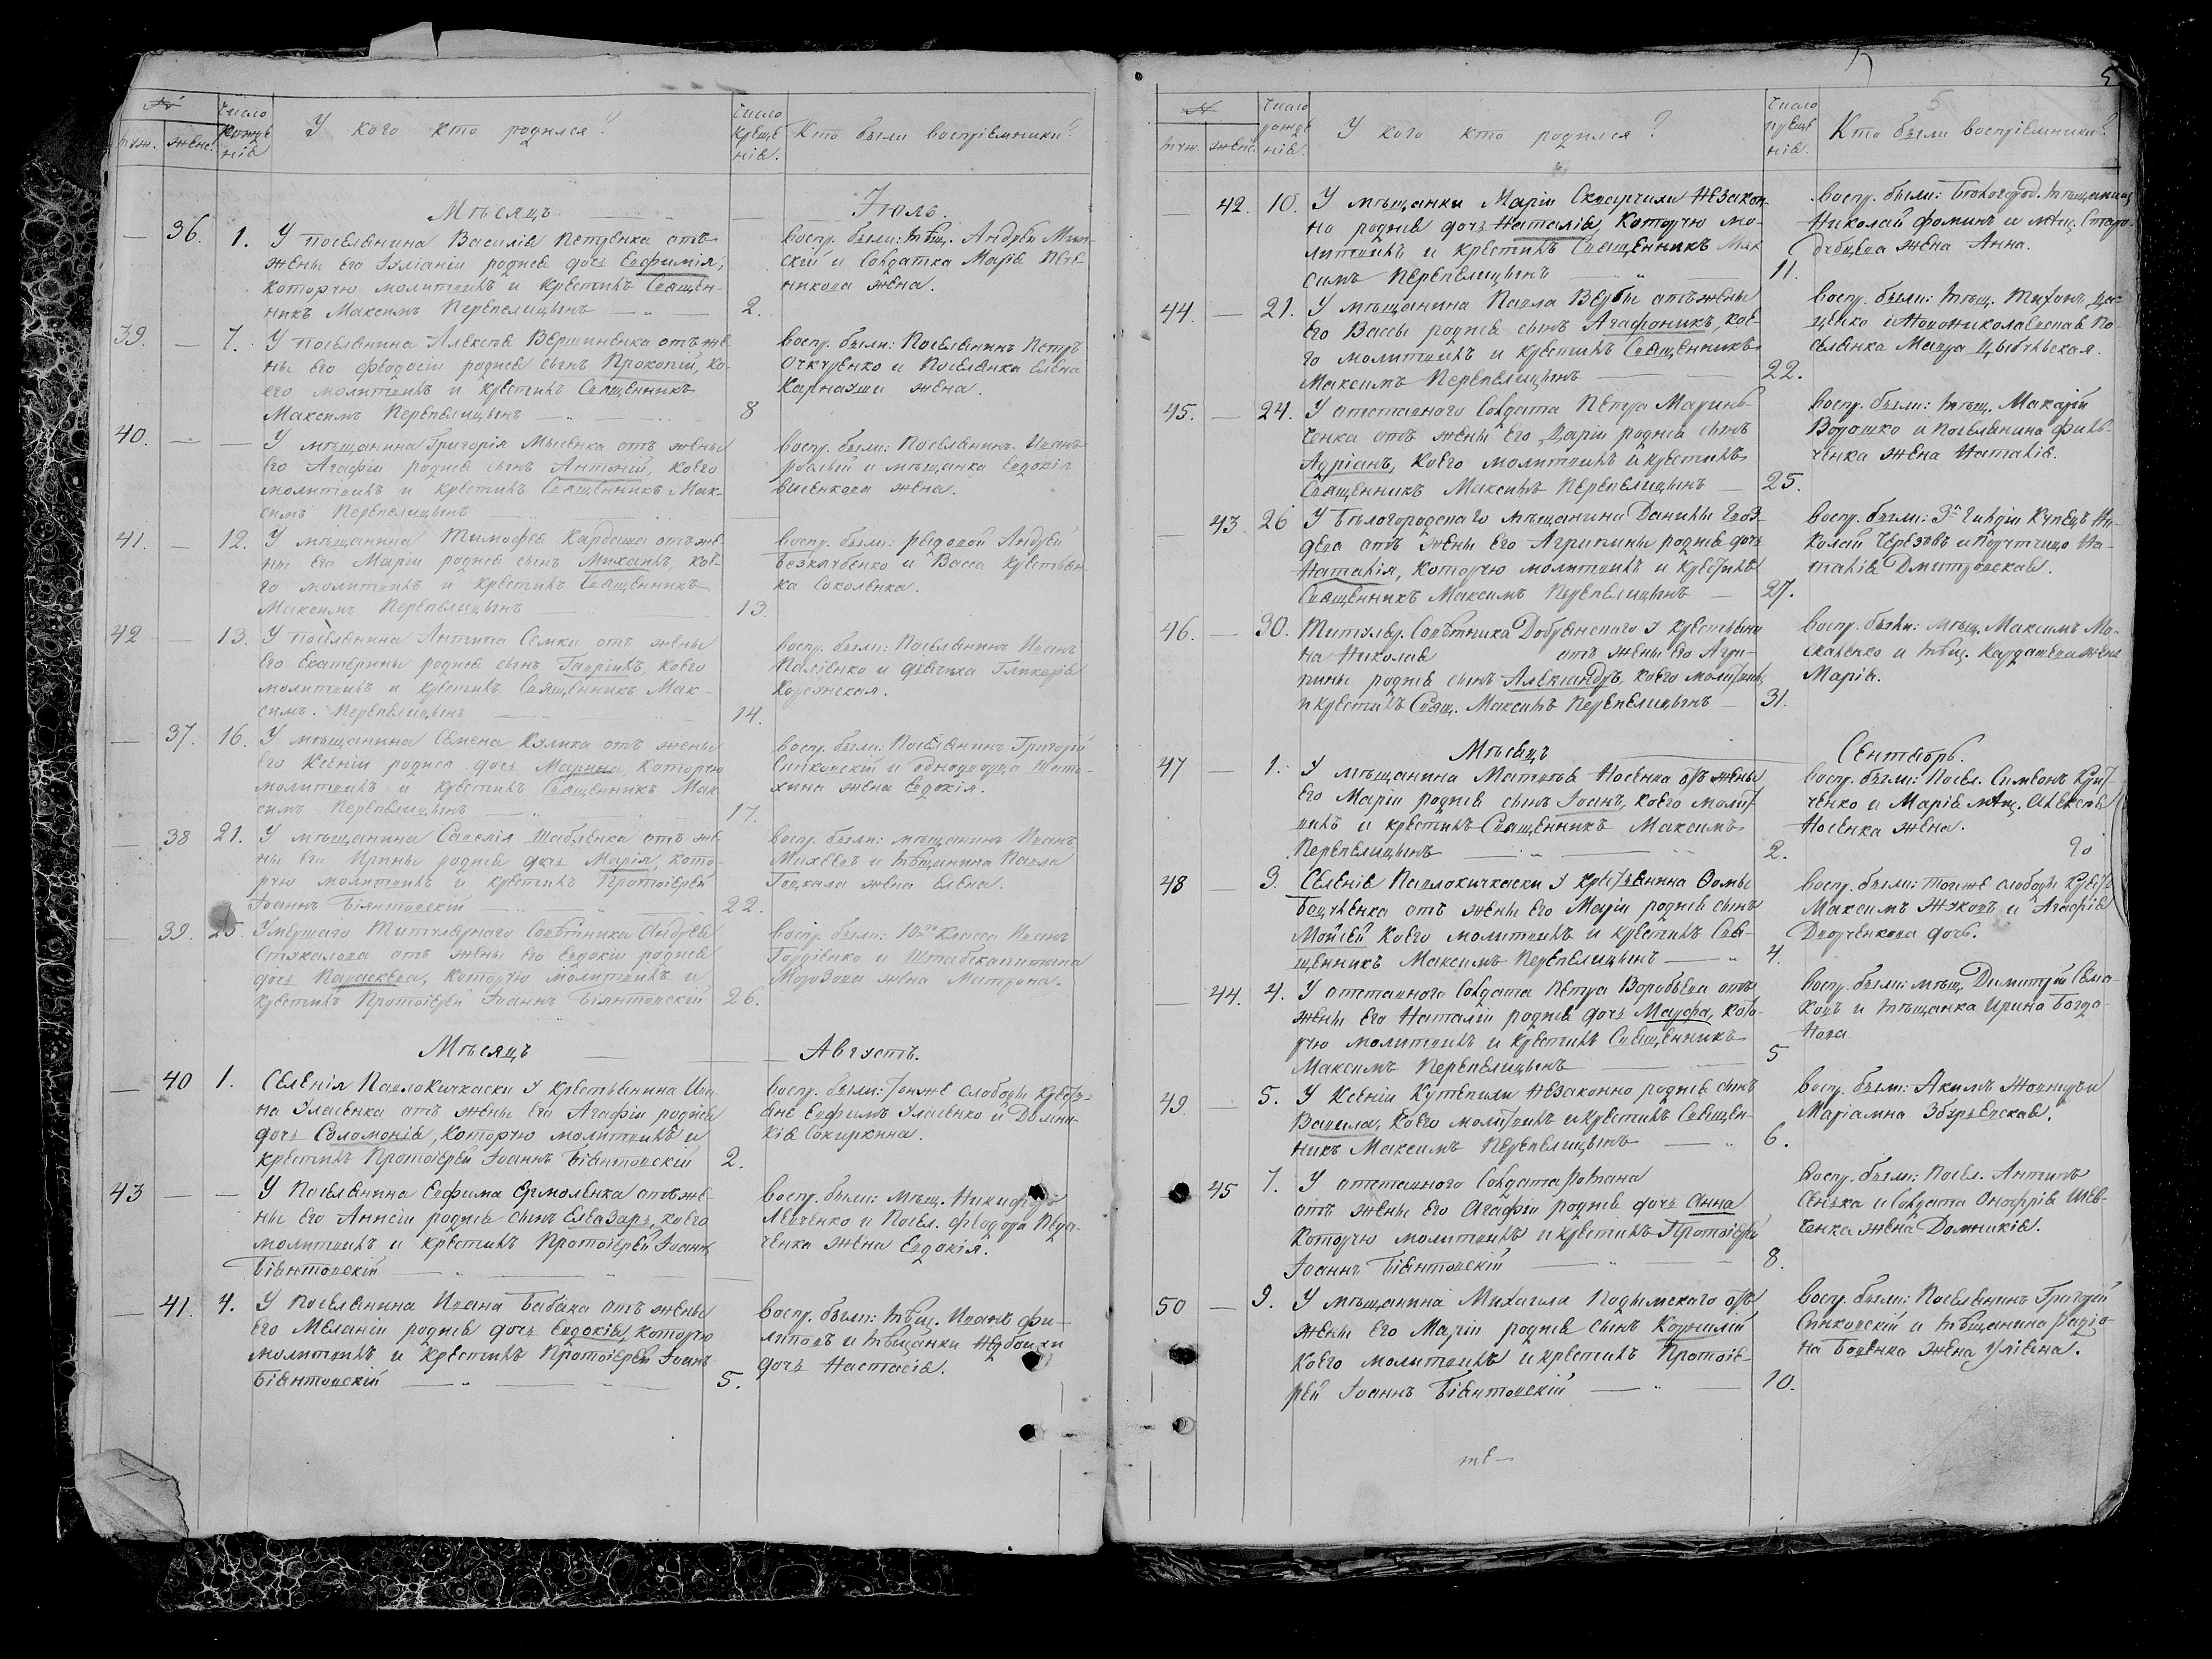 №
Число рожде нія
У кого кто родился?
Число креще нія.
Кто были воспріемники?
муж. женс.
Мѣсяцъ — Іюль.
— 36. 1. У поселянина Василія Петренка отъ
жены его Іуліаніи родися дочь Евфимія,
которую молитвилъ и крестилъ Священ-
никъ Максимъ Перепелицынъ — 2.
воспр. были: мѣщ. Андрей Мин-
скій и солдатка Марія
жена.
39. — 7. У поселянина Алексѣя Вершиненка отъ же-
ны его Феодосіи родися сынъ Прокопій, ко-
его молитвилъ и крестилъ Священникъ
Максимъ Перепелицынъ — 8
воспр. были: Поселянинъ Петръ
Очкуренко и Поселянка Елена
Карнауши жена.
40. — — У мѣщанина Григорія Мысенка отъ жены
его Агафіи родися сынъ Антоній, коего
молитвилъ и крестилъ Священникъ Мак-
симъ Перепелицынъ
воспр. были: Поселянинъ Иванъ
и мѣщанка Евдокія
жена.
41. — 12. У мѣщанина Тимофея Кардаша отъ же-
ны его Маріи родися сынъ Михаилъ, кое-
го молитвилъ и крестилъ Священникъ
Максимъ Перепелицынъ — 13.
воспр. были: рядовой Андрей
Безклубенко и Васса крестьян-
ка Соколенка.
42 — 13. У поселянина Антипа Семки отъ жены
его Екатерины родися сынъ Гавріилъ, коего
молитвилъ и крестилъ Священникъ Мак-
симъ. Перепелицынъ — 14.
воспр. были: Поселянинъ Иванъ
Палієнко и дѣвчука Гликерія
Коржнская.
— 37. 16. У мѣщанина Семена Кулика отъ жены
его Ксеніи родися дочь Марина, которую
молитвилъ и крестилъ Священникъ Мак-
симъ Перепелицынъ 17.
воспр. были: Поселянинъ Григорій
Синковскій и однодворца Шато-
хина жена Евдокія.
— 38 21. У мѣщанина Савелія Шабленка отъ же-
ны его Ирины родися дочь Марія, кото-
рую молитвилъ и крестилъ Протоіерей
Іоаннъ Біянтовскій — 22.
воспр. были: мѣщанинъ Иванъ
Михеевъ и мѣщанина Павла
Гоцкала жена Елена.
— 39. 25. Умершаго Титулярнаго Совѣтника Андрея
Стукалова отъ жены его Евдокіи родися
дочь Параскева, которую молитвилъ и
крестилъ Протоіерей Іоаннъ Біянтовскій 26.
воспр. были: 10го класса Иванъ
Гордіенко и Штабскапитана
Морозова жена Матрона.
Мѣсяцъ — Августъ.
— 40 1. Селенія Павлокичкаски у крестьянина Ива-
на Уласенка отъ жены его Агафіи родися
дочь Соломонія, которую молитвилъ и
крестилъ Протоіерей Іоаннъ Біянтовскій 2.
воспр. были: тоиже слободы крест-
яне Евфимъ Уласенко и Домни-
кія Сокиркина.
43 — — У Поселянина Евфима Ермоленка отъ же-
ны его Анисіи родися сынъ Елеазаръ, коего
молитвилъ и крестилъ Протоіерей Іоаннъ
Біянтовскій
воспр. были: мѣщ. Никифоръ
Левченко и Посел. Феодора
ченка жена Евдокія.
— 41. 4. У Поселянина Ивана Бабака отъ жены
его Меланіи родися дочь Евдокія, которую
молитвилъ и крестилъ Протоіерей Іоаннъ
Біянтовскій — 5.
воспр. были: мѣщ. Иванъ Фи-
липовъ и мѣщанки
дочь Настасія.
5
5
№
Число рожде нія.
У кого кто родился?
Число креще нія.
Кто были воспріемники?
муж. женс.
— 42. 10. У мѣщанки Маріи Скварчихи незакон-
но родися дочь Наталія, которую мо-
литвилъ и крестилъ Священникъ Мак
симъ Перепелицынъ — 11.
воспр. были: Бѣлогород. мѣщанинъ
Николай Фоминъ и мѣщ. Старо-
дубцева жена Анна.
44. — 21. У мѣщанина Павла Вербы отъ жены
его Вассы родися сынъ Агафоникъ, кое-
го молитвилъ и крестилъ Священникъ
Максимъ Перепелицынъ — 22.
воспр. были: мѣщ. Тихонъ
ценко и Новониколаевская По-
селянка Мавра Цыбульская.
45. — 24. У отставного солдата Петра Марин-
ченка отъ жены его Даріи родися сынъ
Адріанъ, коего молитвилъ и крестилъ
Священникъ Максимъ Перепелицынъ — 25.
воспр. были: мѣщ. Макарій
Ворошко и поселянина Филь-
ченка жена Наталія.
— 43. 26 У Бѣлогородскаго мѣщанина Данилы Гвоз-
дева отъ жены его Агрипины родися дочь
Наталія, которую молитвилъ и крестилъ
Священникъ Максимъ Перепелицынъ — 27.
воспр. были: 3й гильдіи купецъ Ни-
колай Черезовъ и Поручица На-
талія Дмитровская.
46. — 30. Титуляр. Совѣтника Добрянскаго у крестьяни
на Николая отъ жены его Агри-
пины родися сынъ Александръ, коего молитвилъ
и крестилъ Свящ. Максимъ Перепелицынъ — 31.
воспр. были: мѣщ. Максимъ Мо-
скаленко и мѣщ. Кардашева жена
Марія.
Мѣсяцъ — Сентябрь.
47 — 1. У мѣщанина Матвѣя Носенка отъ жены
его Маріи родися сынъ Іоанъ, коего молит-
вилъ и крестилъ Священникъ Максимъ
Перепелицынъ — 2.
воспр. были: Посел. Симеонъ Крив-
ченко и Марія мѣщ. Алексѣя
Носенка жена.
48 — 3. Селенія Павлокичкаски у крестьянина Ѳомы
Бовченка отъ жены его Маріи родися сынъ
Мойсей коего молитвилъ и крестилъ Свя-
щенникъ Максимъ Перепелицынъ — 4.
воспр. были: тоиже слободы крест.
Максимъ Жуковъ и Агафія
Дворченкова дочь.
— 44. 4. У отставного солдата Петра Воробьева отъ
жены его Наталіи родися дочь Марфа, кото-
рую молитвилъ и крестилъ Священникъ
Максимъ Перепелицынъ — 5
воспр. были: мѣщ. Димитрій Сѣма-
ковъ и мѣщанка Ирина Богда-
нова.
49. — 5. У Ксеніи Кутепихи незаконно родися сынъ
Вавила, коего молитвилъ и крестилъ Священ-
никъ Максимъ Перепелицынъ — 6.
воспр. были: Акимъ Жовтура и
Маріамна Збыревская.
— 45 7. У отставного солдата Романа
отъ жены его Агафіи родися дочь Анна
которую молитвилъ и крестилъ Протоіерей
Іоаннъ Біянтовскій — 8.
воспр. были: Посел. Антипъ
Сенька и солдата Онофрія Шев-
ченка жена Домникія.
50 — 9. У мѣщанина Михаила Подымскаго отъ
жены его Маріи родися сынъ Корнилій
коего молитвилъ и крестилъ Протоіе-
рей Іоаннъ Біянтовскій — 10.
воспр. были: Поселянинъ Григорій
Синковскій и мѣщанина Радіо-
на Бовенка жена Уліяна.